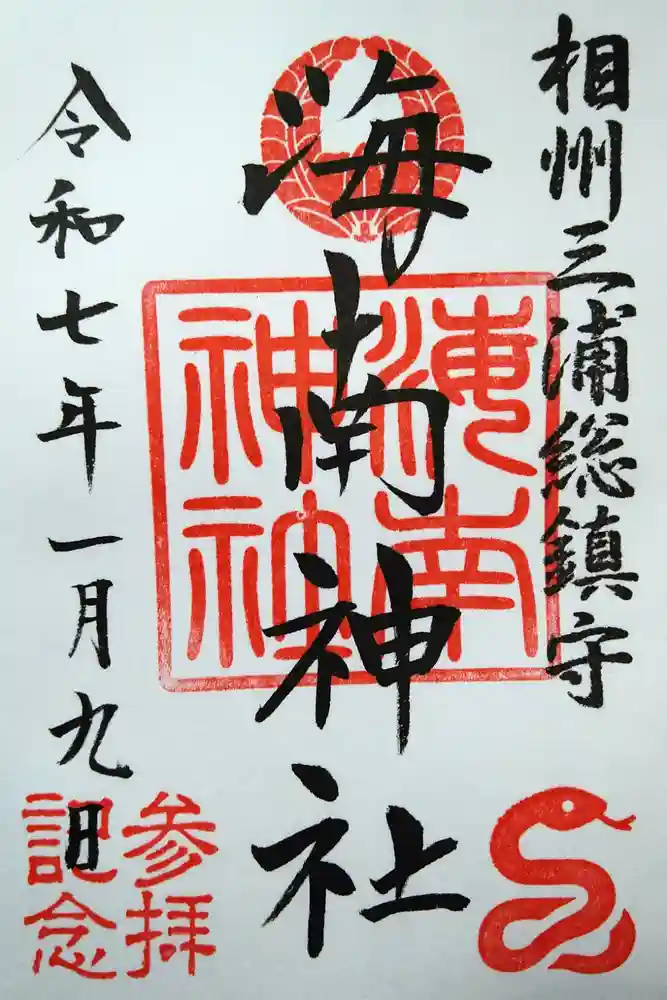 相州三浦総鎮守
海南神社
海南神社
令和七年一月九日
参拝記念